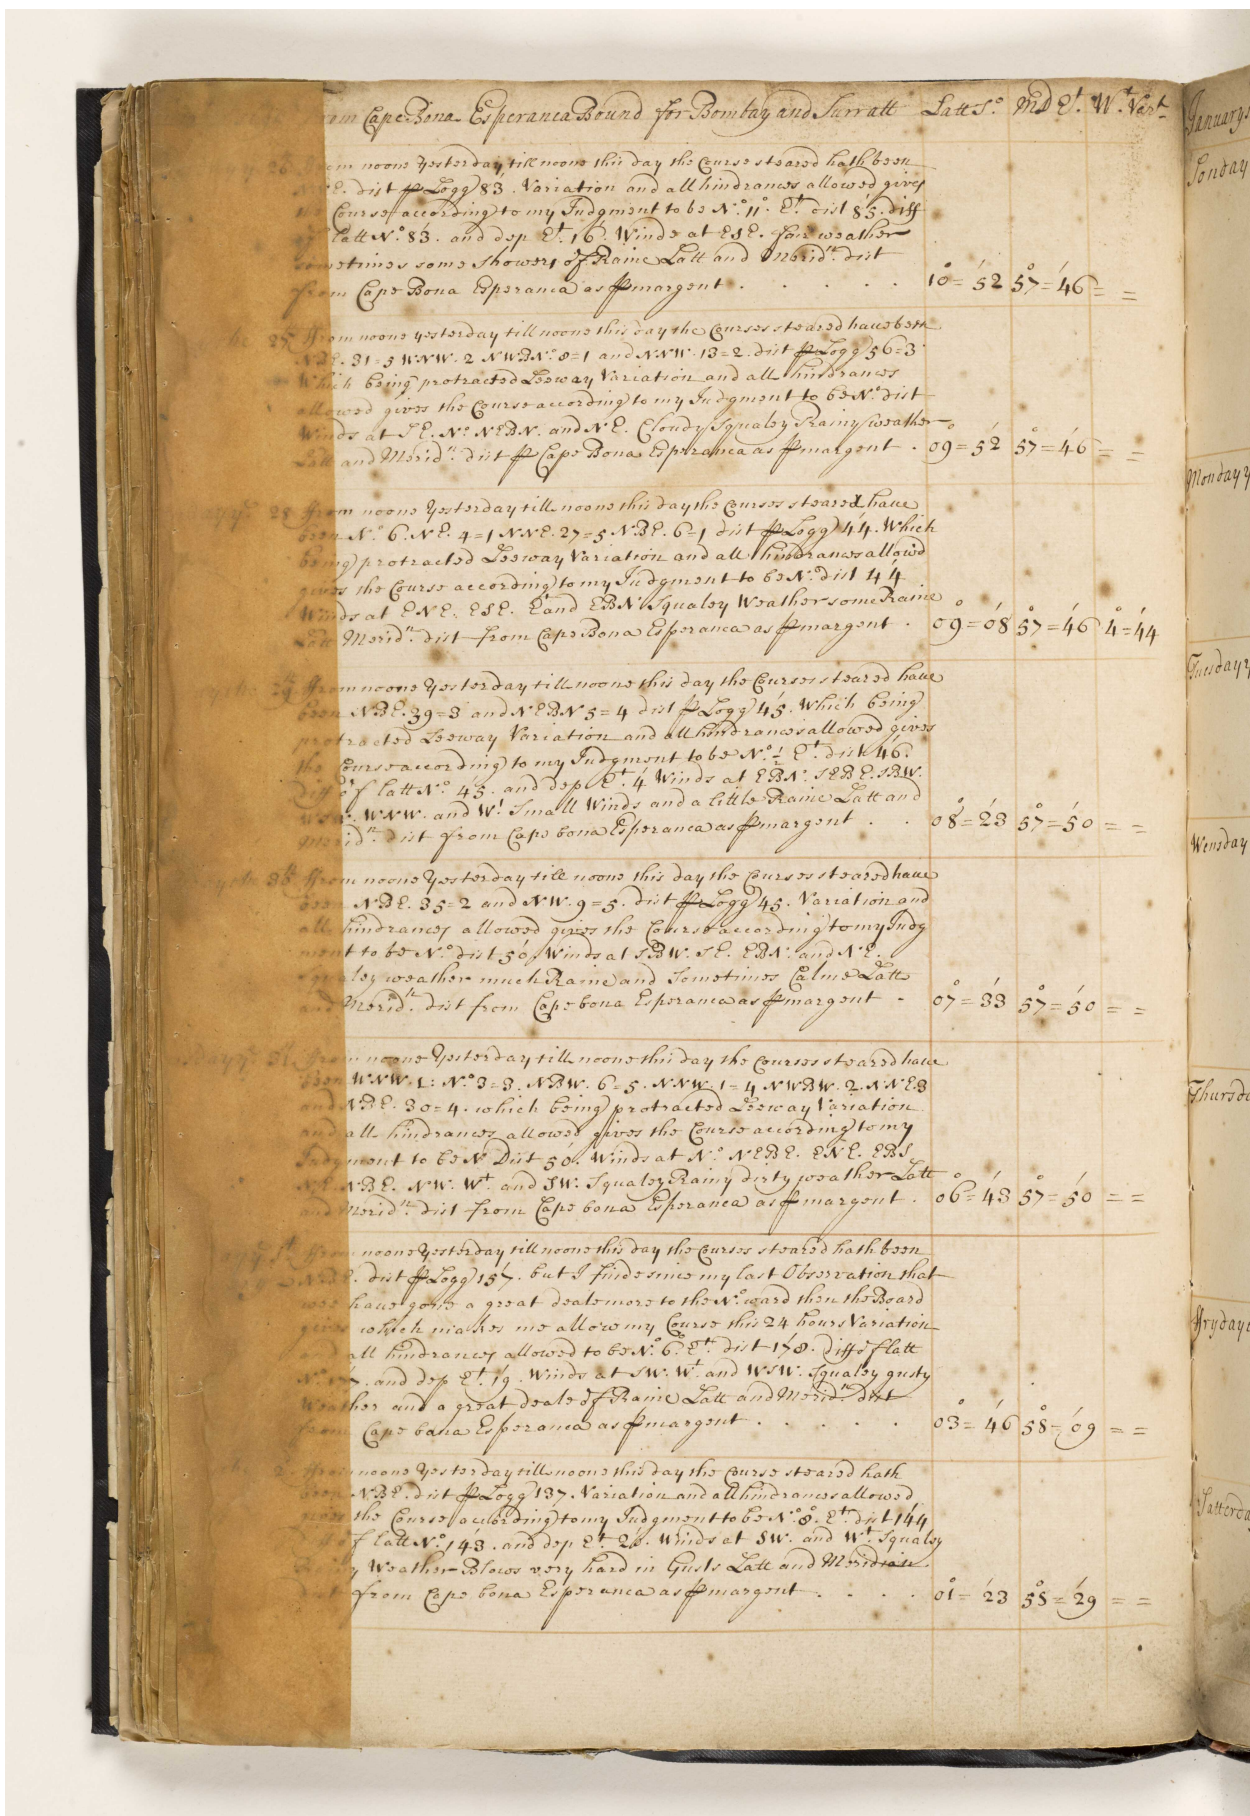 from Cape Bona Esperanca Bound for Bombay and Surratt Latt So. MD Et. Wt. Vart.
26 from noone Yesterday till noone this day the Course steared hath been
NBE. dist p Logg 83. Variation and all hindrances allowed gives
the Course according to my Judgment to be No. 11°. Et. dist 85. diff
of Latt No. 83. and dep Et. 16. Winds at ESE. fair weather
sometimes some showers of Raine Latt and Merid.n dist
from Cape Bona Esperanca as p margent . . . . . 10 = 52 57 = 46 = =
27 ffrom noone yesterday till noone this day the Courses steared haue been
NBE. 31=5 WNW. 2 NWBNo. 8=1 and NNW. 13=2. dist p Logg 56=3
Which being protracted Leeway Variation and all hindrances
allowed gives the Course according to my Judgment to be No. dist
Winds at SE. No. NEBN. and NE. Cloudy Squaley Rainy weather
Latt and Merid.n dist p Cape Bona Esperanca as p margent . 09 = 52 57 = 46 = =
28 ffrom noone Yesterday till noone this day the Courses steared haue
been No. 6. NE. 4=1 NNE. 27=5 NBE. 6=1 dist p Logg 44. Which
being protracted Leeway Variation and all hindrances allowed
gives the Course according to my Judgment to be No. dist 44
Winds at ENE. ESE. E and EBN Squaley Weather some Raine
Latt Merid.n dist from Cape Bona Esperanca as p margent . 09 = 08 57 = 46 4 = 44
29 ffrom noone Yesterday till noone this day the Courses steared haue
been NBE. 39=3 and NEBN 5=4 dist p Logg 45. Which being
protracted Leeway Variation and all hindrances allowed gives
the Course according to my Judgment to be No. ½ Et. dist 46.
diff of latt No. 45. and dep Et. 4 Winds at EBN. SEBE. SBW.
WSW. WNW. and Wt. Small Winds and a little Raine Latt and
Merid.n dist from Cape bona Esperanca as p margent . . 08 = 23 57 = 50 = =
30 ffrom noone Yesterday till noone this day the Courses steared haue
been NBE. 35=2 and NW. 9=5. dist p Logg 45. Variation and
all hindrances allowed gives the Course according to my Judg
ment to be No. dist 50. Winds at SBW. SE. EBN. and NE.
Squaley weather much Raine and Sometimes Calme Latt
and Merid.n dist from Cape bona Esperanca as p margent - 07 = 33 57 = 50 = =
31 ffrom noone Yesterday till noone this day the Courses steared haue
been WNW. 1: No. 3=3. NBW. 6=5. NNW. 1=4 NWBW. 2. NNE 3
and NBE. 30=4. which being protracted Leeway Variation
and all hindrances allowed gives the Course according to my
Judgment to be N Dist 50. Winds at No. NEBE. ENE. EBS
NE. NBE. NW. Wt. and SW. Squaley Rainy dirty weather Latt
and Merid.n dist from Cape bona Esperanca as p margent . 06 = 43 57 = 50 = =
1t ffrom noone Yesterday till noone this day the Courses steared hath been
NBE. dist p Logg 157. but I finde since my last Observation that
wee haue gone a great deale more to the No.ward then the Board
gives which makes me allow my Course this 24 hours Variation
and all hindrances allowed to be No. 6. Et. dist 178. diff of latt
No. and dep Et. 19. Winds at SW. Wt. and WSW. Squaley gusty
Weather and a great deale of Raine Latt and Merid.n dist
from Cape bona Esperanca as p margent . . . . . 03 = 46 58 = 09 = =
2 ffrom noone Yesterday till noone this day the Course steared hath
been NBE. dist p Logg 137. Variation and all hindrances allowed
gives the Course according to my Judgment to be No. 8. Et. dist 144
diff of latt No. 143. and dep Et. 20. Winds at SW. and Wt. Squaley
Rainy Weather Blows very hard in Gusts Latt and Meridian.
dist from Cape bona Esperanca as p margent . . . . 01 = 23 58 = 29 = =
January
Sonday
Monday
Tuesday
Wensday
Thursda
ffryday
Satterda